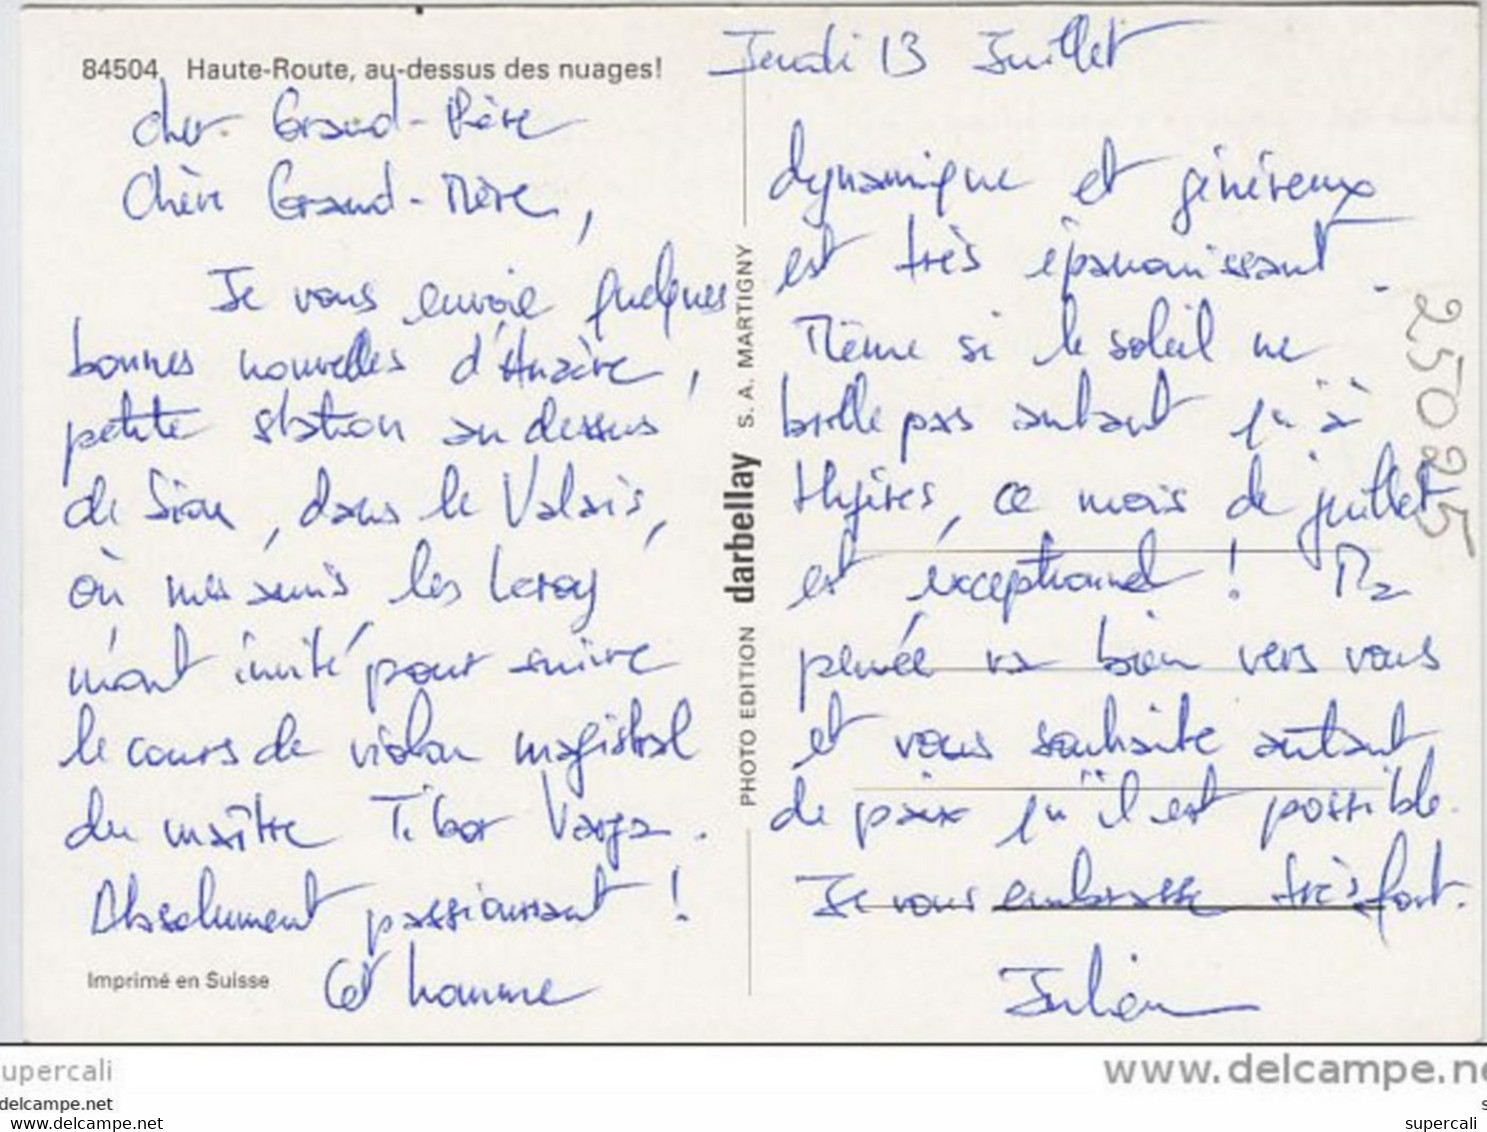 84504 Haute-Route, au-dessus des nuages!
Cher Grand-Père
Chère Grand-Mère,
Je vous envoie quelques
bonnes nouvelles d'Anzère,
petite station au dessus
de Sion, dans le Valais,
où mes amis les Leroy
m'ont invité pour suivre
le cours de violon magistral
du maître Tibor Varga.
Absolument passionnant !
Cet homme
Imprimé en Suisse
PHOTO EDITION darbellay S. A. MARTIGNY
Jeudi 13 Juillet
dynamique et généreux
est très épanouissant.
Même si le soleil ne
brille pas autant qu'à
Hyères, ce mois de juillet
est exceptionnel ! Ma
pensée va bien vers vous
et vous souhaite autant
de paix qu'il est possible.
Je vous embrasse très fort.
Julien
250215
supercali
delcampe.net
www.delcampe.ne
supercali